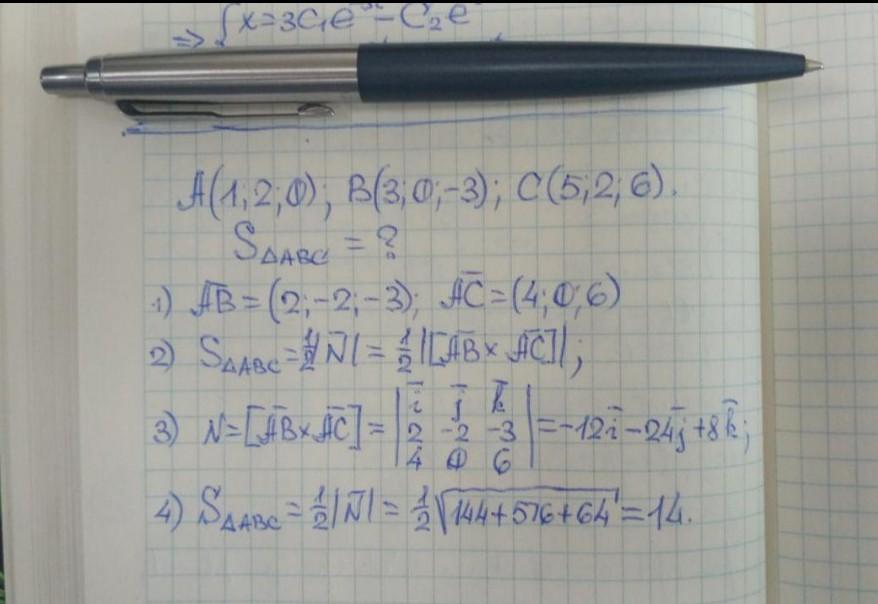 ⇒ {x=3C₁e – C₂e
A(1;2;0); B(3;0;-3); C(5;2;6).
S△ABC = ?
1) A̅B̅ = (2;-2;-3); A̅C̅ = (4;0;6)
2) S△ABC = ½|N̅| = ½|[A̅B̅ × A̅C̅]|;
3) N = [A̅B̅ × A̅C̅] = | i̅ j̅ k̅ |
| 2 -2 -3 | = -12i̅ - 24j̅ + 8k̅;
| 4 0 6 |
4) S△ABC = ½|N̅| = ½√(144+576+64) = 14.